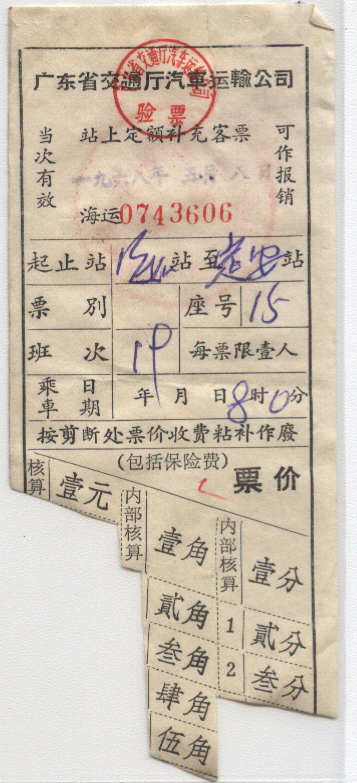 广东省交通厅汽車运輸公司
验票
站上定额补充客票
当次有效
可作报销
一九六八年 五月 八日
海运0743606
起止站 站至定安站
票别 座号 15
班次 19 每票限壹人
乘車日期 年 月 日 8时0分
按剪断处票价收费粘补作廢
(包括保险费)
票价
核算 壹元
内部核算 壹角
内部核算 壹分
贰角 1 贰分
叁角 2 叁分
肆角
伍角